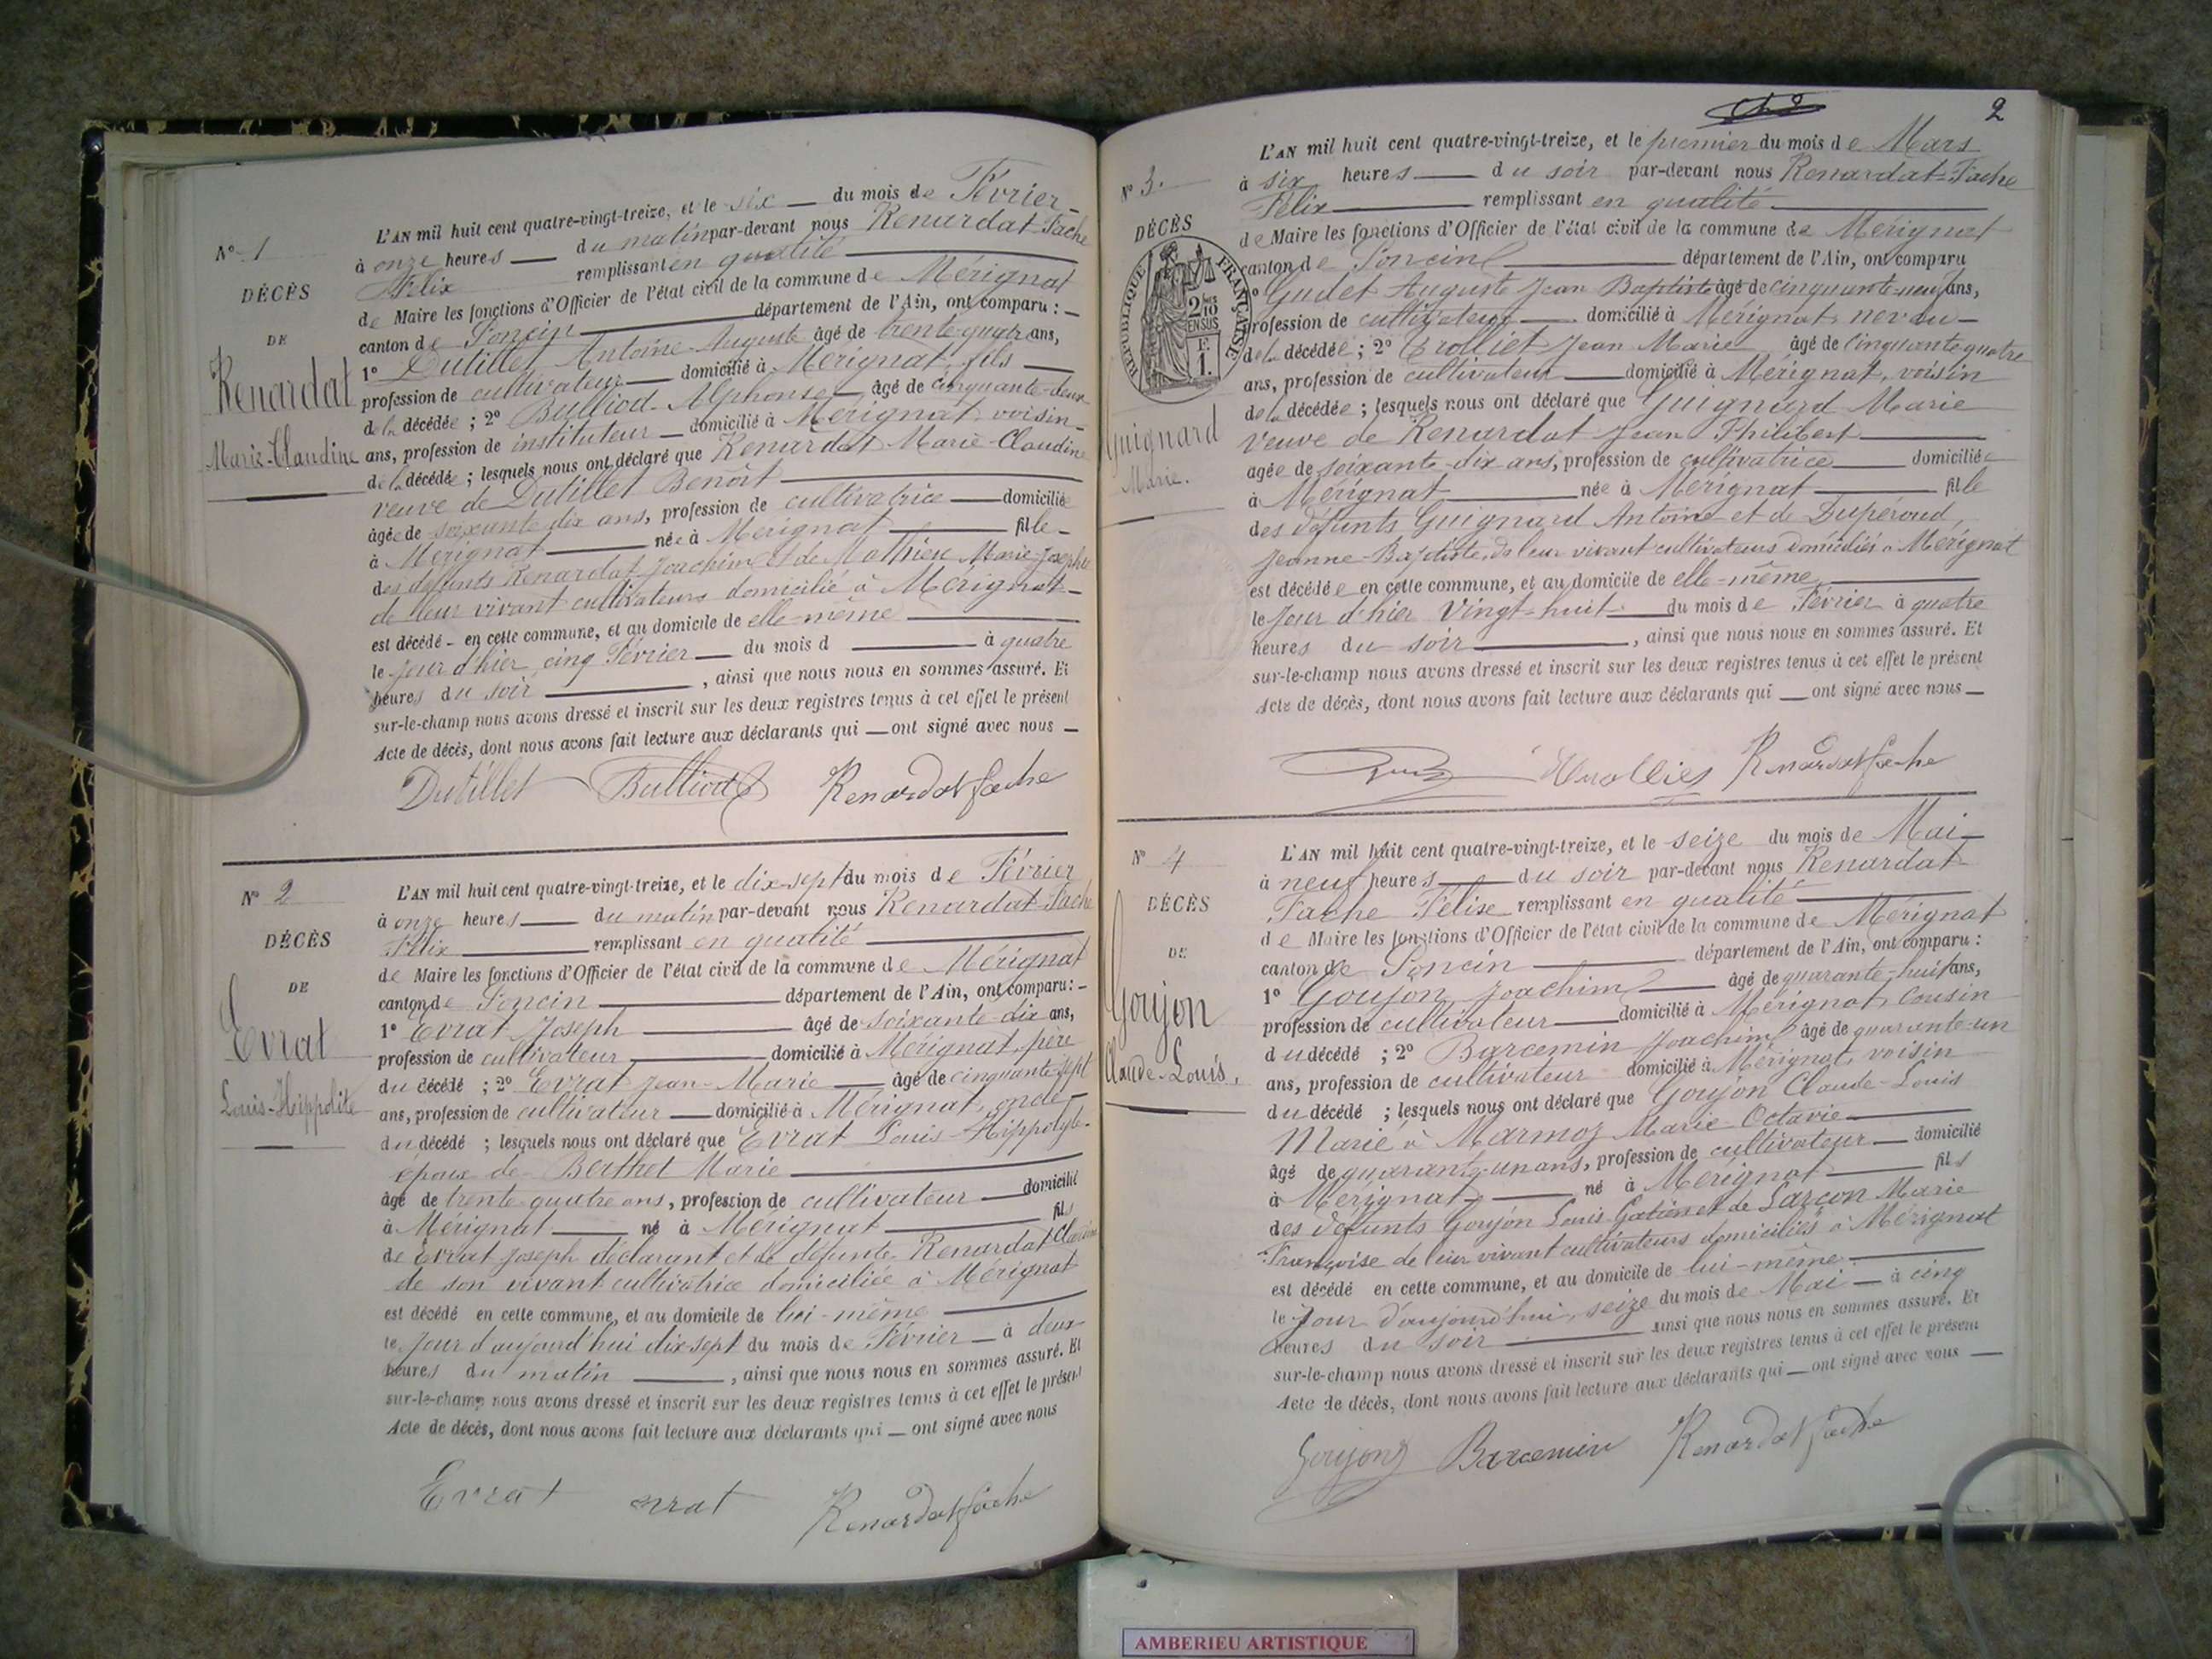 N° 1
DÉCÈS
DE
Renardat
Marie-Claudine
L'AN mil huit cent quatre-vingt-treize, et le six du mois de Février
à onze heures du matin par-devant nous Renardat-Fache
Félix remplissant en qualité
de Maire les fonctions d'Officier de l'état civil de la commune de Mérignat
canton de Poncin département de l'Ain, ont comparu :
1° Dutillet Antoine Auguste âgé de trente-quatre ans,
profession de cultivateur domicilié à Mérignat, fils
de la décédée ; 2° Bulliod Alphonse âgé de cinquante-deux
ans, profession de instituteur domicilié à Mérignat voisin
de la décédée ; lesquels nous ont déclaré que Renardat Marie-Claudine
veuve de Dutillet Benoît
âgée de soixante dix ans, profession de cultivatrice domiciliée
à Mérignat née à Mérignat fille
des défunts Renardat Joachim et de Mathieu Marie-Josephe
de leur vivant cultivateurs domicilié à Mérignat
est décédé en cette commune, et au domicile de elle-même
le jour d'hier cinq Février du mois d à quatre
heures du soir , ainsi que nous nous en sommes assuré. Et
sur-le-champ nous avons dressé et inscrit sur les deux registres tenus à cet effet le présent
Acte de décès, dont nous avons fait lecture aux déclarants qui ont signé avec nous
Dutillet Bulliod Renardat fache
N° 2
DÉCÈS
DE
Evrat
Louis-Hippolite
L'AN mil huit cent quatre-vingt-treize, et le dix-sept du mois de Février
à onze heures du matin par-devant nous Renardat-Fache
Félix remplissant en qualité
de Maire les fonctions d'Officier de l'état civil de la commune de Mérignat
canton de Poncin département de l'Ain, ont comparu :
1° Evrat Joseph âgé de soixante dix ans,
profession de cultivateur domicilié à Mérignat, père
du décédé ; 2° Evrat Jean-Marie âgé de cinquante-sept
ans, profession de cultivateur domicilié à Mérignat, oncle
du décédé ; lesquels nous ont déclaré que Evrat Louis-Hippolyte
époux de Berthet Marie
âgé de trente-quatre ans, profession de cultivateur domicilié
à Mérignat né à Mérignat fils
de Evrat Joseph déclarant et de défunte Renardat
de son vivant cultivatrice domiciliée à Mérignat
est décédé en cette commune, et au domicile de lui-même
le jour d'aujourd'hui dix-sept du mois de Février à deux
heures du matin , ainsi que nous nous en sommes assuré. Et
sur-le-champ nous avons dressé et inscrit sur les deux registres tenus à cet effet le présent
Acte de décès, dont nous avons fait lecture aux déclarants qui ont signé avec nous
Evrat evrat Renardat fache
2
N° 3.
DÉCÈS
RÉPUBLIQUE FRANÇAISE
2/10 EN SUS
F. 1.
Guignard
Marie.
L'AN mil huit cent quatre-vingt-treize, et le premier du mois de Mars
à six heures du soir par-devant nous Renardat-Fache
Félix remplissant en qualité
de Maire les fonctions d'Officier de l'état civil de la commune de Mérignat
canton de Poncin département de l'Ain, ont comparu
1° Gudet Auguste Jean Baptiste âgé de cinquante-neuf ans,
profession de cultivateur domicilié à Mérignat neveu
de la décédée ; 2° Trolliet Jean Marie âgé de cinquante quatre
ans, profession de cultivateur domicilié à Mérignat, voisin
de la décédée ; lesquels nous ont déclaré que Guignard Marie
veuve de Renardat Jean Philibert
agée de soixante-dix ans, profession de cultivatrice domiciliée
à Mérignat née à Mérignat fille
des défunts Guignard Antoine et de Dupéroud
Jeanne-Baptiste, de leur vivant cultivateurs domiciliés à Mérignat
est décédée en cette commune, et au domicile de elle-même
le jour d'hier vingt-huit du mois de Février à quatre
heures du soir , ainsi que nous nous en sommes assuré. Et
sur-le-champ nous avons dressé et inscrit sur les deux registres tenus à cet effet le présent
Acte de décès, dont nous avons fait lecture aux déclarants qui ont signé avec nous
Renardat fache
N° 4
DÉCÈS
DE
Goujon
Claude-Louis.
L'AN mil huit cent quatre-vingt-treize, et le seize du mois de Mai
à neuf heures du soir par-devant nous Renardat
Fache Félix remplissant en qualité
de Maire les fonctions d'Officier de l'état civil de la commune de Mérignat
canton de Poncin département de l'Ain, ont comparu :
1° Goujon Joachim âgé de quarante-huit ans,
profession de cultivateur domicilié à Mérignat, cousin
du décédé ; 2° Barcemin Joachim âgé de quarante-un
ans, profession de cultivateur domicilié à Mérignat, voisin
du décédé ; lesquels nous ont déclaré que Goujon Claude-Louis
Marié à Marmoz Marie-Octavie
âgé de quarante-un ans, profession de cultivateur domicilié
à Mérignat né à Mérignat fils
des défunts Goujon Louis Gatien et de Larçon Marie
Françoise de leur vivant cultivateurs domiciliés à Mérignat
est décédé en cette commune, et au domicile de lui-même
le jour d'aujourd'hui, seize du mois de Mai à cinq
heures du soir ainsi que nous nous en sommes assuré. Et
sur-le-champ nous avons dressé et inscrit sur les deux registres tenus à cet effet le présent
Acte de décès, dont nous avons fait lecture aux déclarants qui ont signé avec nous
Goujon Barcemin Renardat fache
AMBERIEU ARTISTIQUE